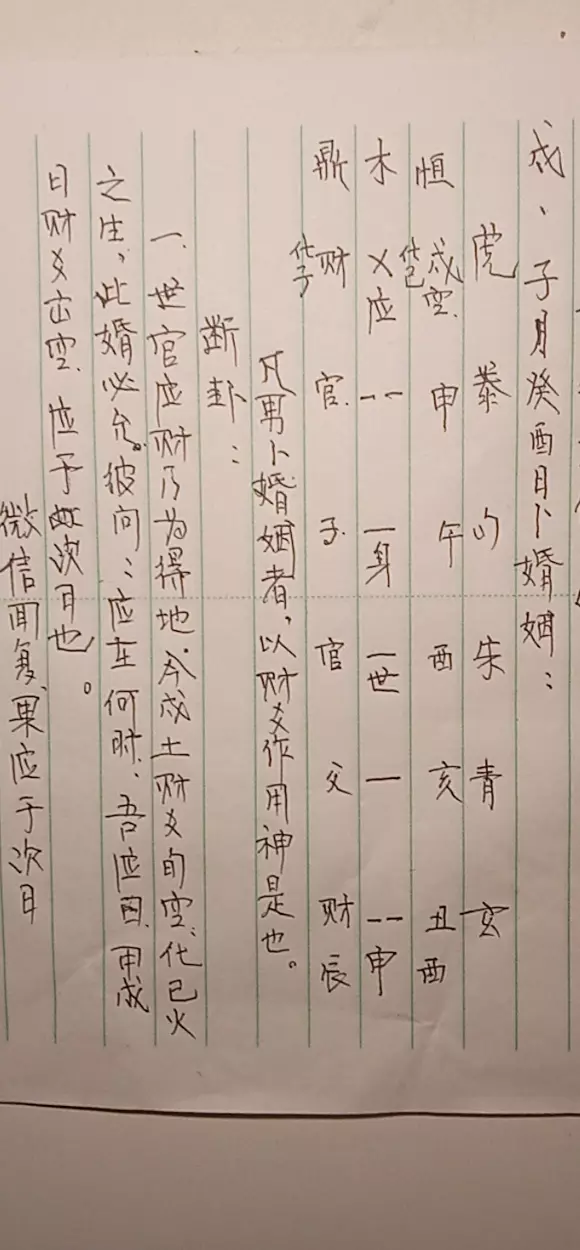 戌、子月癸酉日卜婚姻：
虎 蛇 勾 朱 青 玄
恒 戌空 化巳 申 午 酉 亥 丑 酉
木 乂应 -- 一身 一世 一 -- 申
鼎 财 化子 官 子 官 父 财 辰
凡男卜婚姻者，以财爻作用神是也。
断卦：
一、世官应财乃为得地，今戌土财爻旬空，化巳火
之生，此婚必允。彼问：应在何时，吾应曰，甲戌
日财爻出空，应于次月也。
微信回复，果应于次月